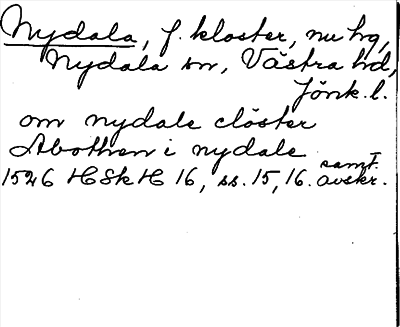 Nydala, f. kloster, nu hg,
Nydala sn, Västra hd,
Jönk. l.
om nydale clöster
Abothen i nydale
1526 HSkH 16, ss. 15, 16. samt. avskr.